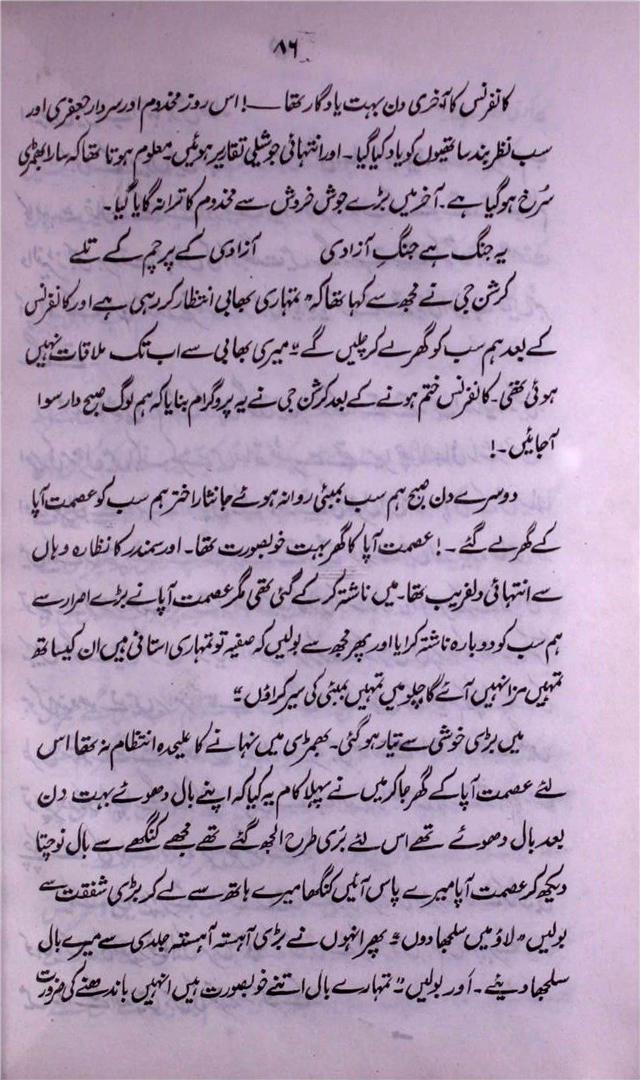 ۸۶
کانفرنس کا آخری دن بہت یادگار تھا ــــ! اس روز مخدوم اور سردار جعفری اور
سب نظر بند ساتھیوں کو یاد کیا گیا۔ اور انتہائی جوشیلی تقاریر ہوئیں۔ معلوم ہوتا تھا کہ سارا بھمڑی
سُرخ ہو گیا ہے۔ آخر میں بڑے جوش خروش سے مخدوم کا ترانہ گایا گیا۔
یہ جنگ ہے جنگِ آزادی آزادی کے پرچم کے تلے
کرشن جی نے مجھ سے کہا تھا کہ "تمہاری بھابی انتظار کر رہی ہے اور کانفرنس
کے بعد ہم سب کو گھر لے کر چلیں گے" میری بھابی سے اب تک ملاقات نہیں
ہوئی تھی۔ کانفرنس ختم ہونے کے بعد کرشن جی نے یہ پروگرام بنایا کہ ہم لوگ صبح دارسوا
آجائیں۔!
دوسرے دن صبح ہم سب بمبئی روانہ ہوئے جانثار اختر ہم سب کو عصمت آپا
کے گھر لے گئے۔! عصمت آپا کا گھر بہت خوبصورت تھا۔ اور سمندر کا نظارہ وہاں
سے انتہائی دلفریب تھا۔ میں ناشتہ کر کے گئی تھی مگر عصمت آپا نے بڑے اصرار سے
ہم سب کو دوبارہ ناشتہ کرایا اور پھر مجھ سے بولیں کہ صفیہ تو تمہاری استانی ہیں ان کیساتھ
تمہیں مزا نہیں آئے گا چلو میں تمہیں بمبئی کی سیر کراؤں"
میں بڑی خوشی سے تیار ہو گئی۔ بھمڑی میں نہانے کا علیحدہ انتظام نہ تھا اس
لئے عصمت آپا کے گھر جا کر میں نے پہلا کام یہ کیا کہ اپنے بال دھوئے بہت دن
بعد بال دھوئے تھے اس لئے بُری طرح الجھ گئے تھے مجھے کنگھے سے بال نوچتا
دیکھ کر عصمت آپا میرے پاس آئیں کنگھا میرے ہاتھ سے لے کر بڑی شفقت سے
بولیں "لاؤ میں سلجھا دوں" پھر انہوں نے بڑی آہستہ آہستہ جلدی سے میرے بال
سلجھا دیئے۔ اور بولیں "تمہارے بال اتنے خوبصورت ہیں انہیں باندھنے کی ضرورت